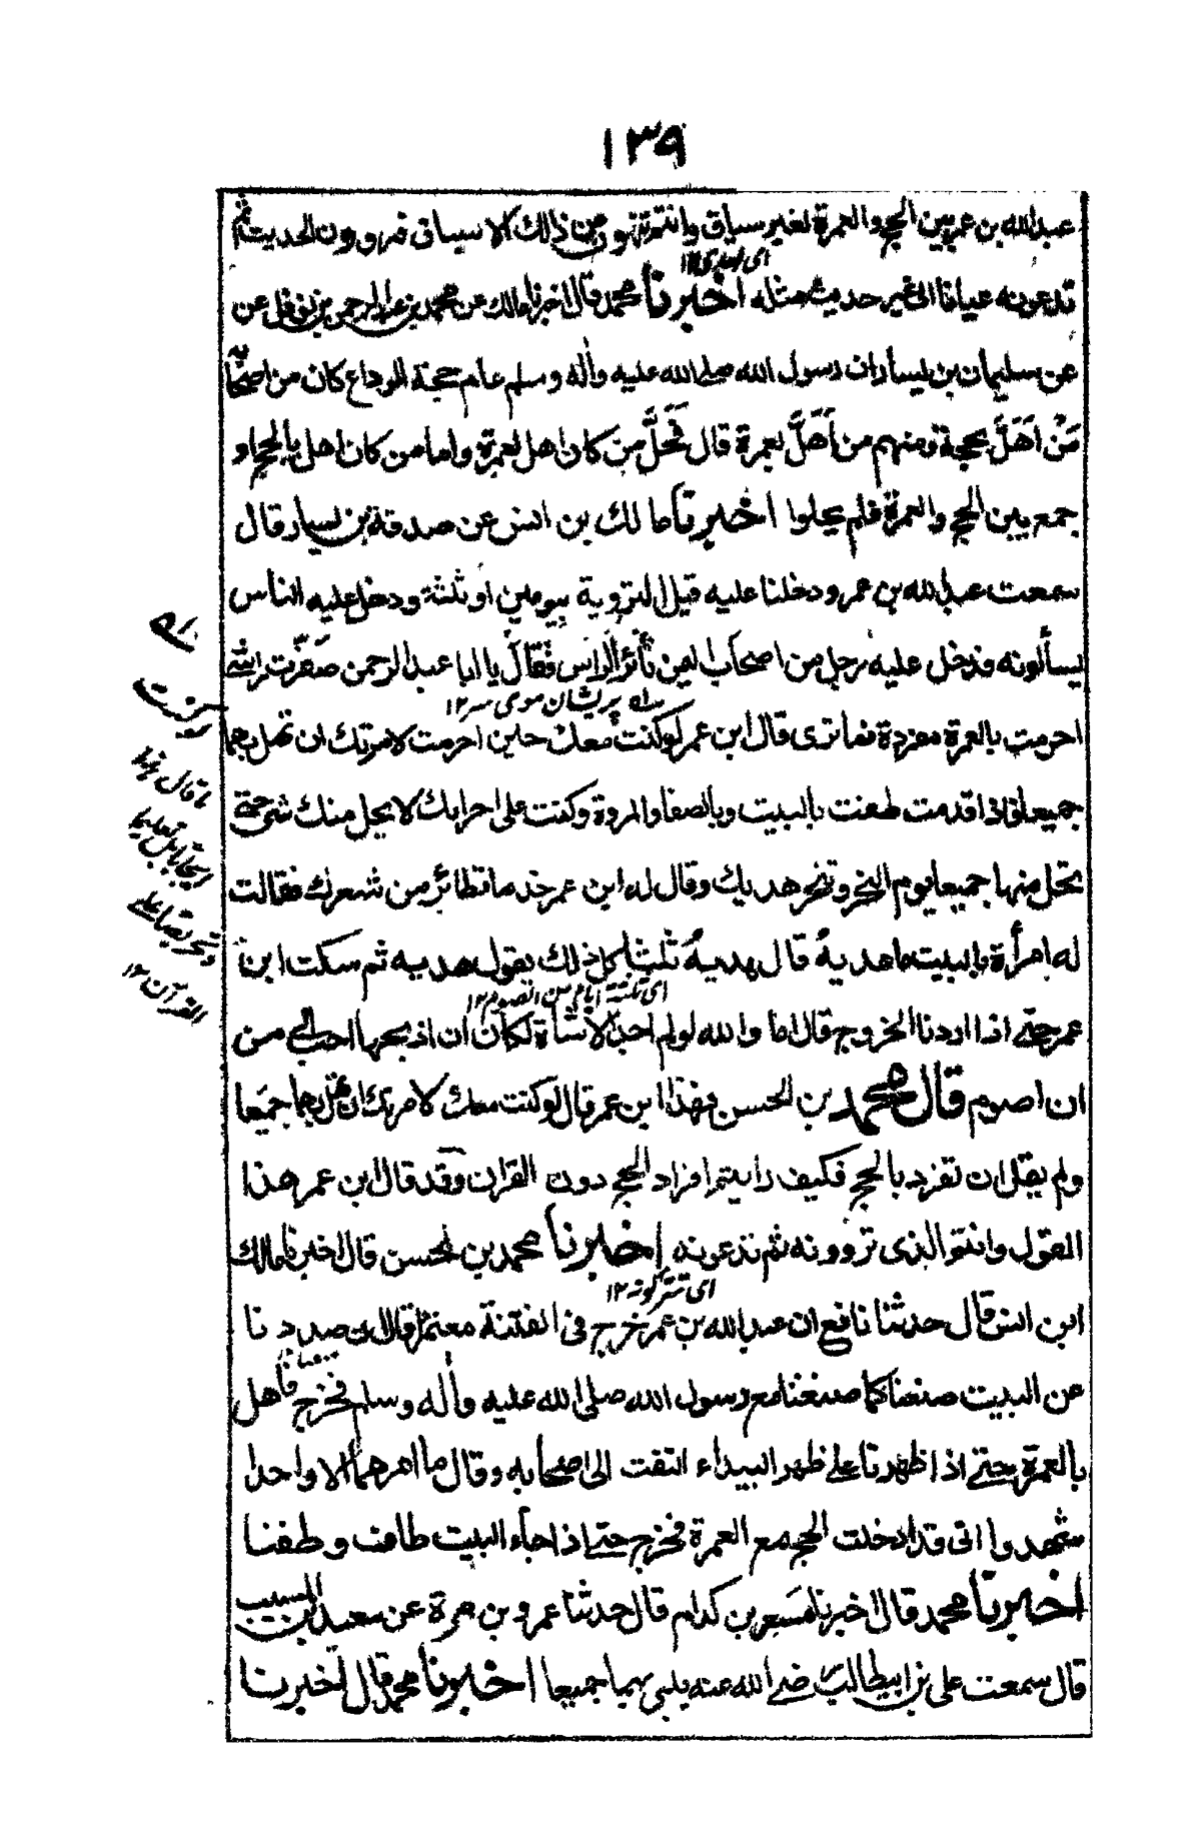 ١٣٩
عبد الله بن عمر بين الحج والعمرة لغير سياق وانتم تنهون من ذلك الا سياق قد روون الحديث ثم
تدعونه عيانا الى غير حديث مثله اخبرنا محمد قال اخبرنا مالك عن محمد بن عبد الرحمن بن نوفل عن
عن سليمان بن يسار ان رسول الله صلى الله عليه واله وسلم عام حجة الوداع كان من اصحابه
مَنْ اَهَلَّ بحجة ومنهم من اَهَلَّ بعمرة قال فَحَلَّ من كان اهل بعمرة واما من كان اهل بالحج او
جمع بين الحج والعمرة فلم يحلوا اخبرنا مالك بن انس عن صدقة بن يسار قال
سمعت عبد الله بن عمر ودخلنا عليه قبل التروية بيومين او ثلثة ودخل عليه الناس
يسألونه فدخل عليه رجل من اصحاب اليمن ثائر الراس فقال يا ابا عبد الرحمن ضفرت راسى
سله پريشان موى سر ١٢
احرمت بالعمرة مفردة فما ترى قال ابن عمر لو كنت معك حين احرمت لامرتك ان تهل بهما
جميعا فاذا قدمت طفت بالبيت وبالصفا والمروة وكنت على احرامك لا يحل منك شئ حتى
تحل منهما جميعا يوم النحر وتنحر هديك وقال له ابن عمر خذ ما تطائر من شعرك فقالت
له امرأة بالبيت ما هديهُ قال هديهُ ثلثا كل ذلك يقول هديه ثم سكت ابن
اى ثلثة ايام من الصوم ١٢
عمر حتى اذا اردنا الخروج قال اما والله لو لم اجد الا شاة لكان ان اذبحها احب الى من
ان اصوم قال محمد بن الحسن فهذا ابن عمر قال لو كنت معك لامرتك ان تهل بهما جميعا
ولم يقل ان تفرد بالحج فكيف رايتم افراد الحج دون القران وقد قال ابن عمر هذا
القول وانتم الذى تروونه ثم تدعونه اخبرنا محمد بن الحسن قال اخبرنا مالك
اى تتركونه ١٢
ابن انس قال حدثنا نافع ان عبد الله بن عمر خرج فى الفتنة معتمرا قال ان صددنا
عن البيت صنعنا كما صنعنا مع رسول الله صلى الله عليه واله وسلم فخرج فاهل
بالعمرة حتى اذا ظهرنا على ظهر البيداء التفت الى اصحابه وقال ما امرهما الا واحدا
شهدوا انى قد ادخلت الحج مع العمرة فخرج حتى اذا جاء البيت طاف وطفنا
اخبرنا محمد قال اخبرنا مسعر بن كدام قال حدثنا عمرو بن مرة عن سعيد بن المسيب
قال سمعت على بن ابيطالب رضى الله عنه يلبى بهما جميعا اخبرنا محمد قال اخبرنا
ما قال هذا
ايجابا بل تعليما
وتحريضا على
القرآن ١٢